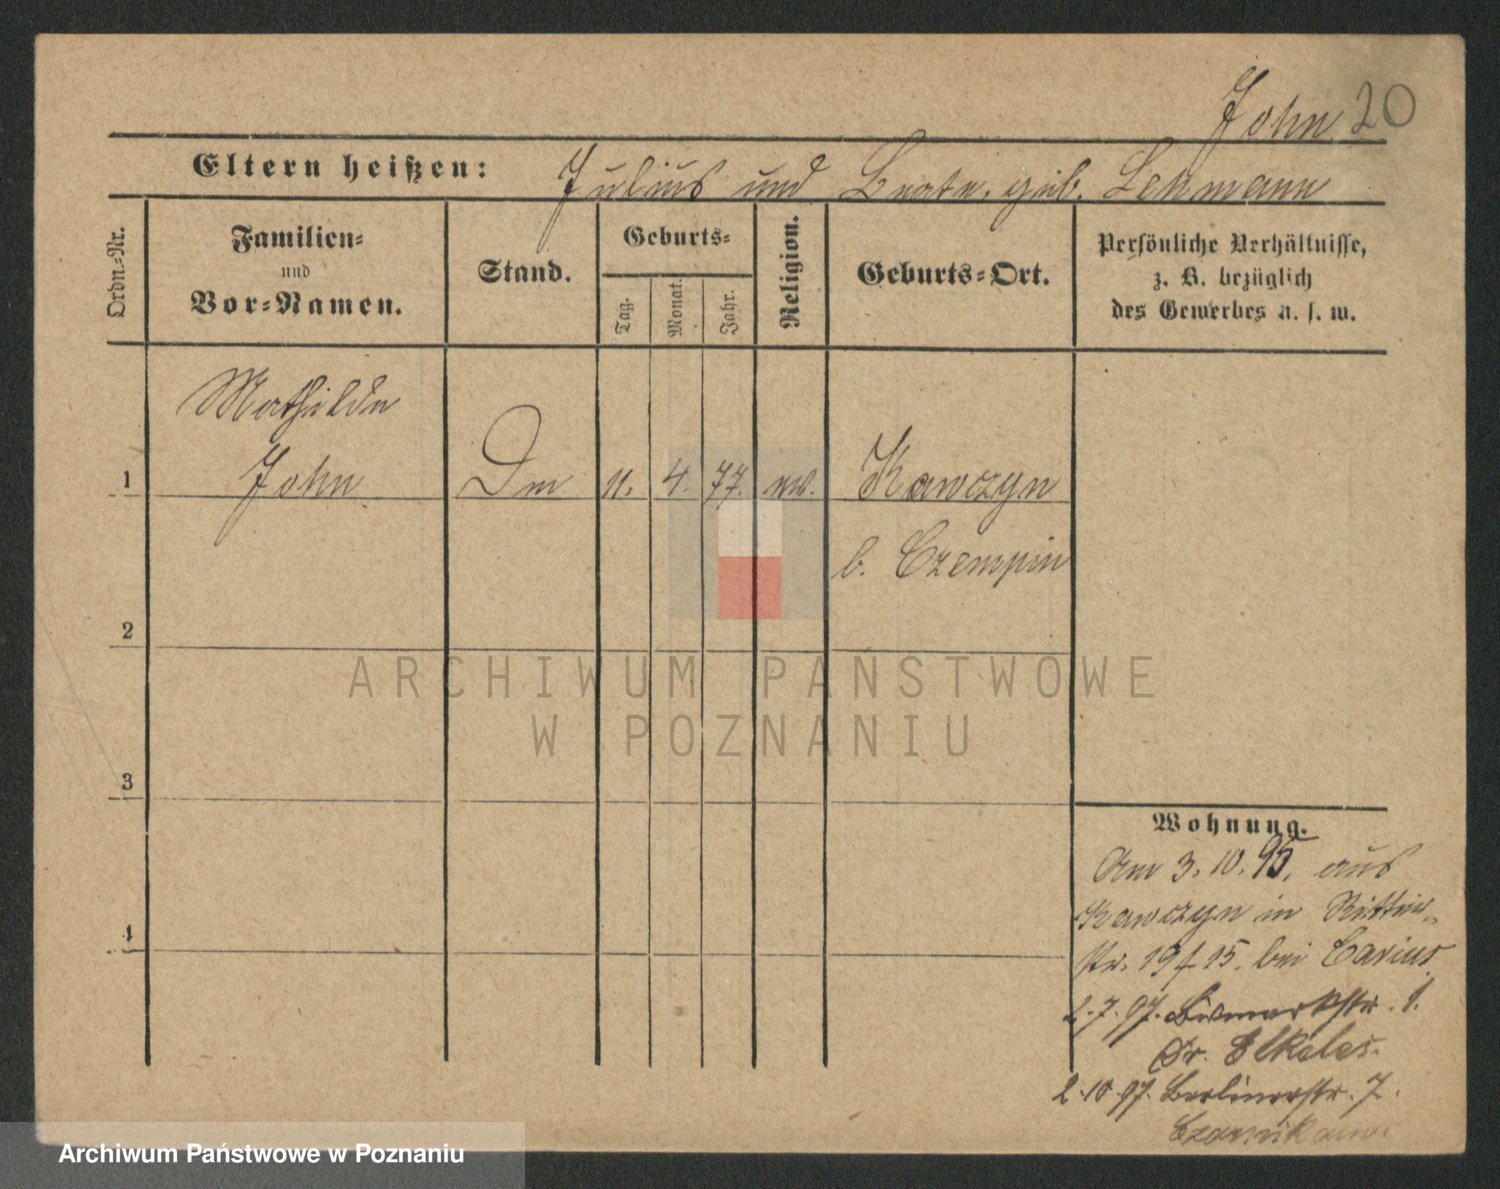 John 20
Eltern heißen: Julius und Beate, geb. Lehmann
Ordn.-Nr.
Familien-
und
Vor-Namen.
Stand.
Geburts-
Tag.
Monat.
Jahr.
Religion.
Geburts-Ort.
Persönliche Verhältnisse,
z. B. bezüglich
des Gewerbes u. s. w.
Mathilde
1 John
11. 4. 77. ev. Kawczyn
b. Czempin
2
3
4
Wohnung.
Am 3. 10. 95. aus
Kawczyn in Ritter-
str. 15. bei Carius
2.7.97. Bismarckstr. 1.
Dr. Elkeles.
2.10.97. Berlinerstr. 7.
Czarnikau
ARCHIWUM PAŃSTWOWE
W POZNANIU
Archiwum Państwowe w Poznaniu